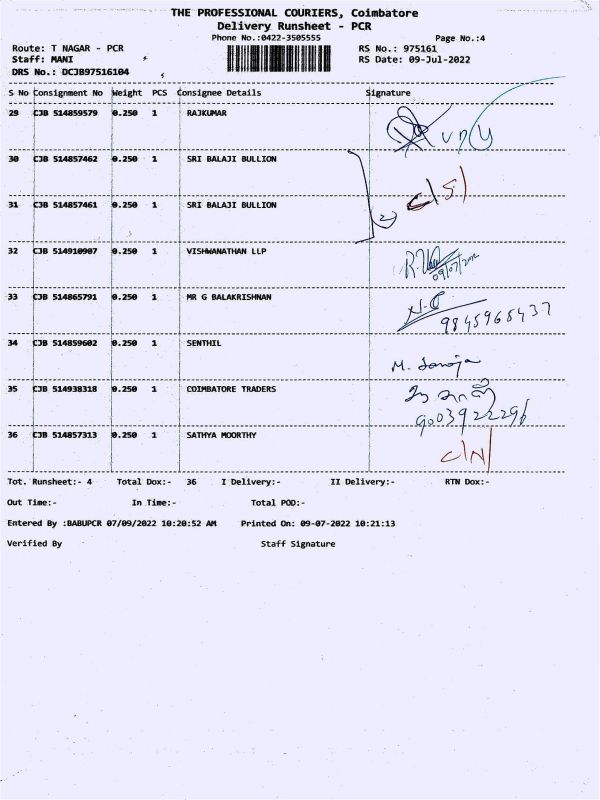 THE PROFESSIONAL COURIERS, Coimbatore
Delivery Runsheet - PCR
Phone No.:0422-3505555 Page No.:4
Route: T NAGAR - PCR RS No.: 975161
Staff: MANI RS Date: 09-Jul-2022
DRS No.: DCJB97516104
S No Consignment No Weight PCS Consignee Details Signature
29 CJB 514859579 0.250 1 RAJKUMAR
30 CJB 514857462 0.250 1 SRI BALAJI BULLION
31 CJB 514857461 0.250 1 SRI BALAJI BULLION
32 CJB 514910907 0.250 1 VISHWANATHAN LLP
33 CJB 514865791 0.250 1 MR G BALAKRISHNAN
9845965437
34 CJB 514859602 0.250 1 SENTHIL
35 CJB 514938318 0.250 1 COIMBATORE TRADERS
9003922296
36 CJB 514857313 0.250 1 SATHYA MOORTHY
Tot. Runsheet:- 4 Total Dox:- 36 I Delivery:- II Delivery:- RTN Dox:-
Out Time:- In Time:- Total POD:-
Entered By :BABUPCR 07/09/2022 10:20:52 AM Printed On: 09-07-2022 10:21:13
Verified By Staff Signature